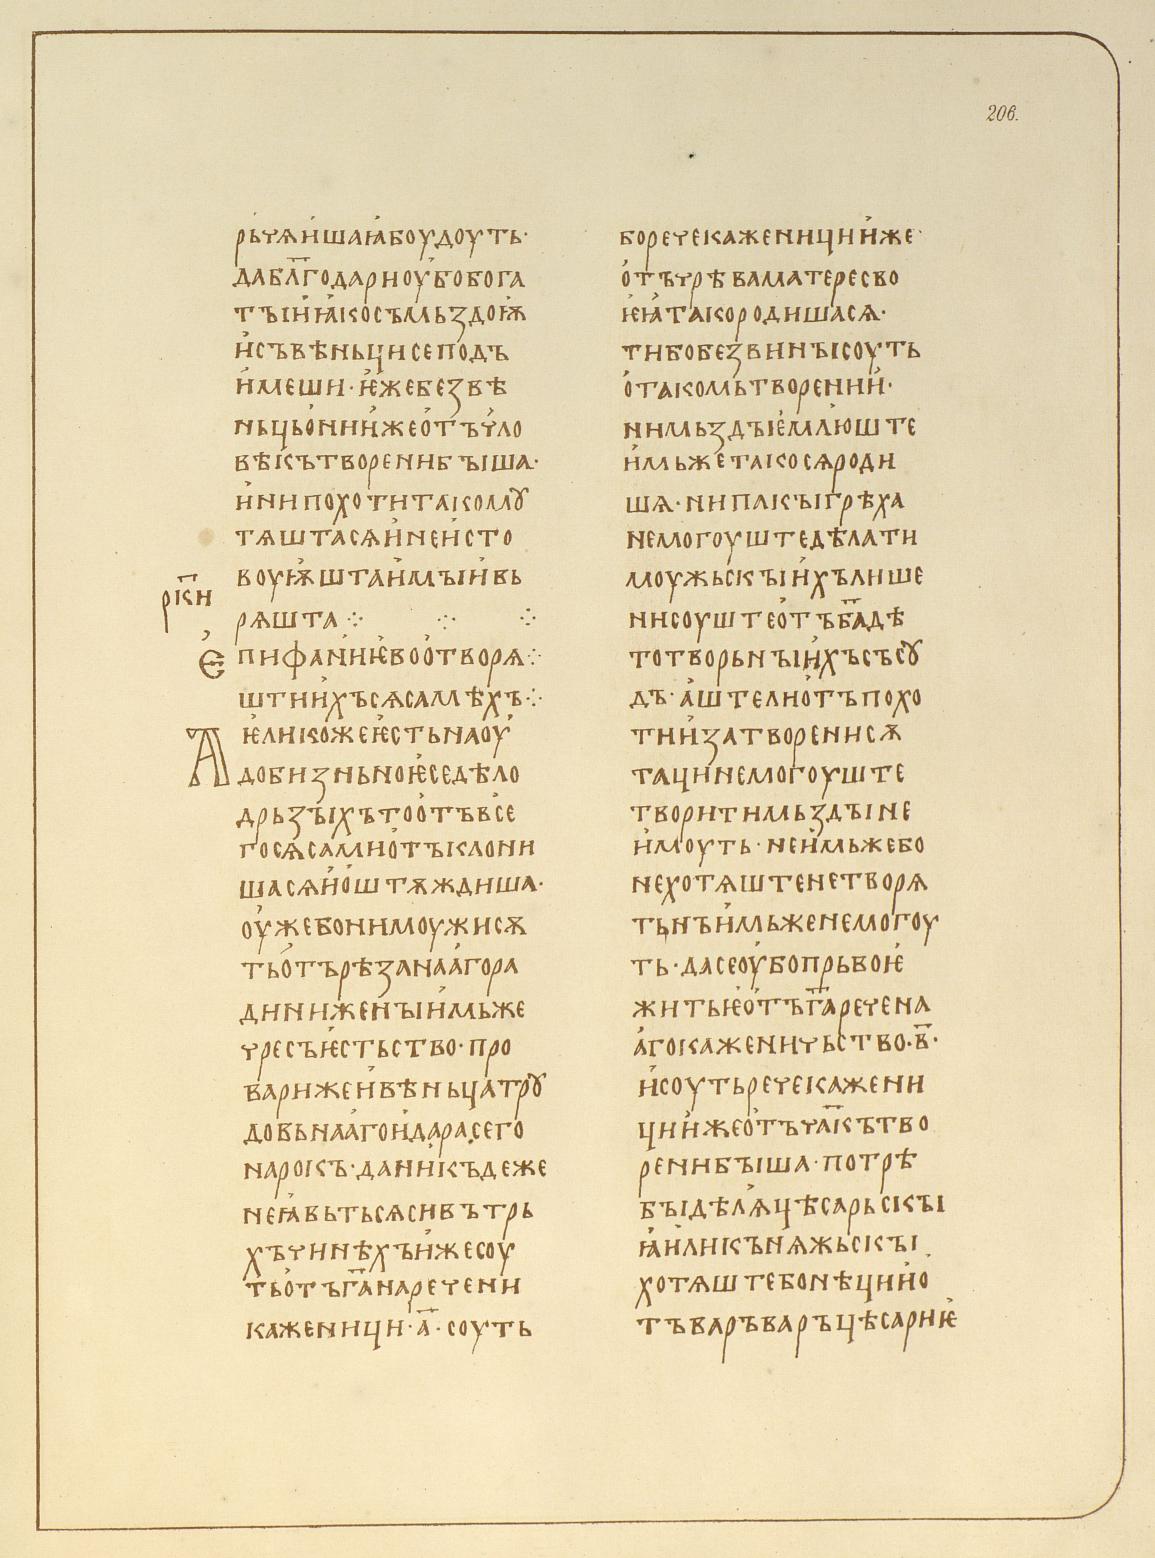 206.
рьчѧи҆шаꙗ҆боудоуть·
дабл҃годарноу҆бобога
тъіи҆ꙗ҆косъмьздоѭ҆
и҆съвѣньцисеподъ
и҆меши·ѥ҆жебезвѣ
ньцьо҆нии҆жео҆тъчло
вѣкътворенибъіша·
и҆нипохотитакомꙋ
тѧштасѧи҆неи҆сто
воуѭ҆штаи҆мъіи҆вь
рѧшта⁘ ⁘ ⁘
рк҃и
Е҆пифании҆ѥ҆воо҆творѧ⁘
штии҆хъсѧсамѣхъ⁘
Аѥ҆ликожеѥ҆стьнаоу҆
добизньноѥ҆седѣло
дрьзъіхътоо҆тъвсе
госѧсамио҆тъклони
шасѧи҆о҆штѫждиша·
оу҆жебонимоужисѫ
тьо҆търѣзанаа҆гора
динижени҆ъіи҆мьже
чресъѥ҆стьство·про
варижеи҆вѣньцатрꙋ
довьнаа҆гои҆дарасего
нарокъ·данни҆къдеже
неꙗ҆вьтьсѧсивътрь
хъчинѣхъи҆жесоу
тьо҆тъг҃анаречени
каженици·а҃·соуть
боречекаженициі҆иже·
о҆тъчрѣваматересво
ѥ҆ꙗ҆такородишасѧ·
тибобезвинъісоуть
о҆такомьтворении҆·
нимьздъіѥ҆млюште
и҆мьжетакосѧроди
шѧ·нипакъігрѣха
немогоуштедѣлати
моужьскъіи҆хълише
нисоуштео҆тъб҃адѣ
тотворьнъіи҆хъсъсꙋ
дъ·а҆штелио҆тъпохо
тии҆затворенисѫ
тацинемогоуште
творитимьздъіне
и҆моуть·неи҆мьжебо
нехотѧштенетворѧ
тьнъи҆мьженемогоу
ть·дасеоу҆бопрьвоѥ҆
житьѥ҆о҆тъг҃аречена
а҆гокаженичьство·в҃·
и҆соутьречекажени
ции҆жео҆тъчл҃кътво
ренибъіша·потрѣ
бъідѣлѧцѣсарьскъі
ꙗ҆и҆ликънѧжьскъі
хотѧштебонѣции҆о҆
тъваръваръцѣсариѥ҆